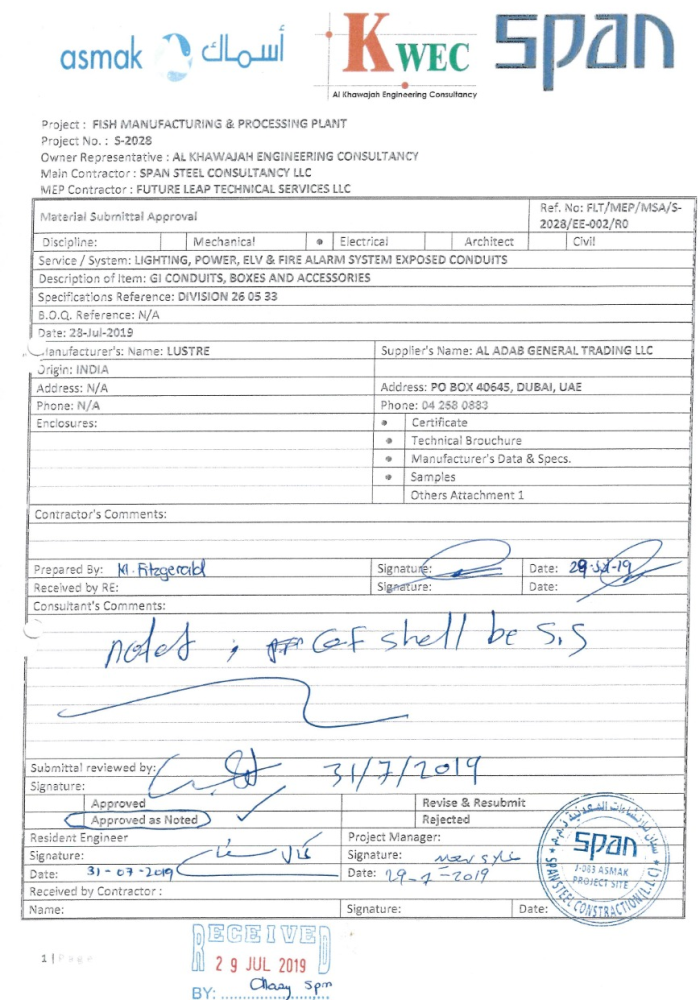 asmak أسماك KWEC span
Al Khawajah Engineering Consultancy
Project : FISH MANUFACTURING & PROCESSING PLANT
Project No. : S-2028
Owner Representative : AL KHAWAJAH ENGINEERING CONSULTANCY
Main Contractor : SPAN STEEL CONSULTANCY LLC
MEP Contractor : FUTURE LEAP TECHNICAL SERVICES LLC
Material Submittal Approval
Ref. No: FLT/MEP/MSA/S-
2028/EE-002/R0
Discipline: Mechanical Electrical Architect Civil
Service / System: LIGHTING, POWER, ELV & FIRE ALARM SYSTEM EXPOSED CONDUITS
Description of Item: GI CONDUITS, BOXES AND ACCESSORIES
Specifications Reference: DIVISION 26 05 33
B.O.Q. Reference: N/A
Date: 28-Jul-2019
Manufacturer's: Name: LUSTRE Supplier's Name: AL ADAB GENERAL TRADING LLC
Origin: INDIA
Address: N/A Address: PO BOX 40645, DUBAI, UAE
Phone: N/A Phone: 04 258 0883
Enclosures: Certificate
Technical Brouchure
Manufacturer's Data & Specs.
Samples
Others Attachment 1
Contractor's Comments:
Prepared By: M. Fitzgerald Signature: Date: 29-Jul-19
Received by RE: Signature: Date:
Consultant's Comments:
noted ; GF shell be S.S
Submittal reviewed by: 31/7/2019
Signature:
Approved Revise & Resubmit
Approved as Noted Rejected
Resident Engineer Project Manager:
Signature: Signature:
Date: 31-07-2019 Date: 29-7-2019
Received by Contractor :
Name: Signature: Date:
span
J-083 ASMAK
PROJECT SITE
SPAN STEEL CONSTRACTION (L.L.C)
1 | Page
RECEIVED
29 JUL 2019
BY: Spm